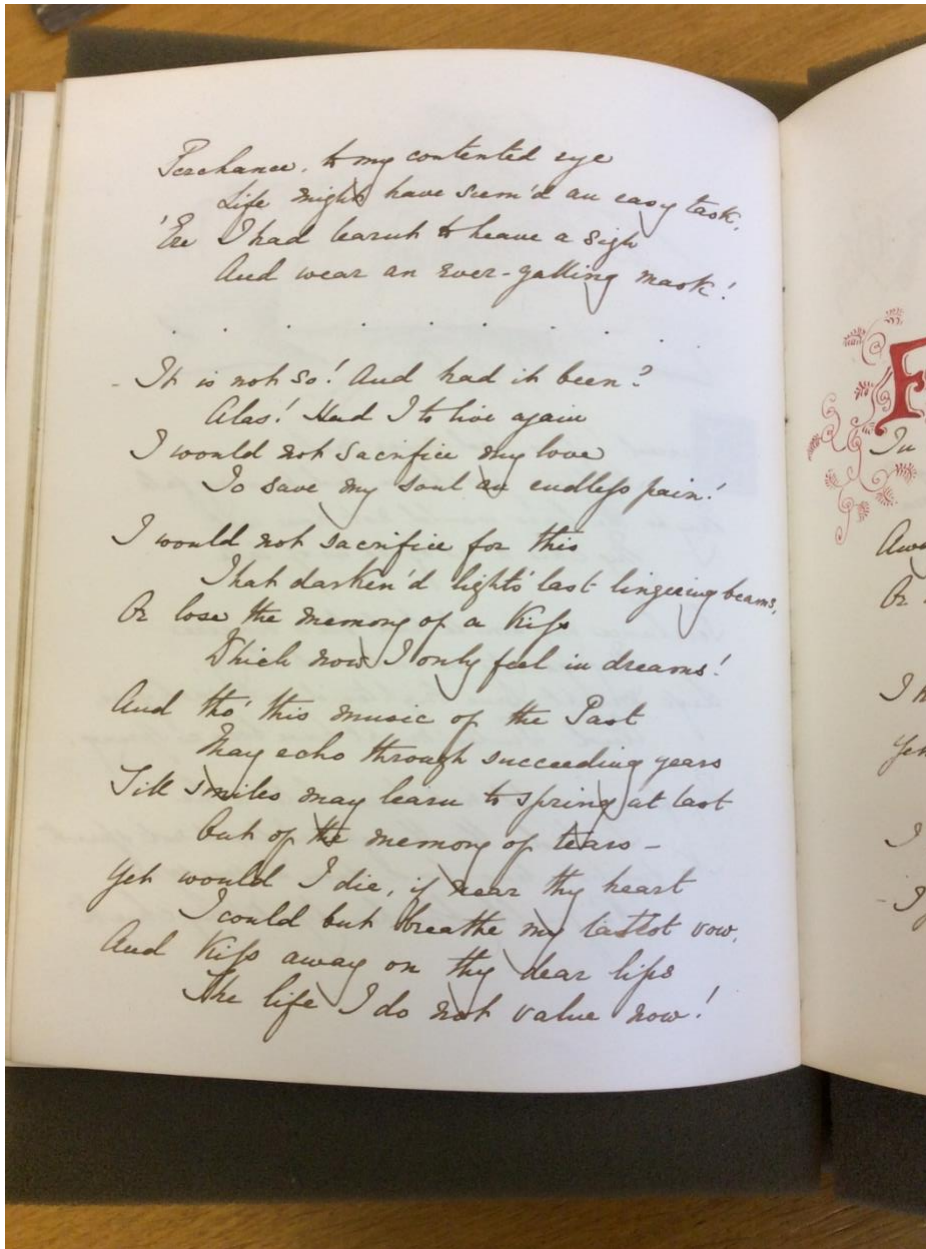 Perchance, to my contented eye
Life might have seem'd an easy task,
'Ere I had learnt to heave a sigh
And wear an ever-galling mask!
. . . . . . . . .
- It is not so! And had it been?
Alas! Had I to live again
I would not sacrifice my love
To save my soul an endless pain!
I would not sacrifice for this
That darken'd lights' last lingering beams,
Or lose the memory of a Kiss
Which now I only feel in dreams!
And tho' this music of the Past
May echo through succeeding years
Till smiles may learn to spring at last
Out of the memory of tears -
Yet would I die, if near thy heart
I could but breathe my lastest vow,
And Kiss away on thy dear lips
The life I do not value now!
F
In
Or
I
Yet
I
- I